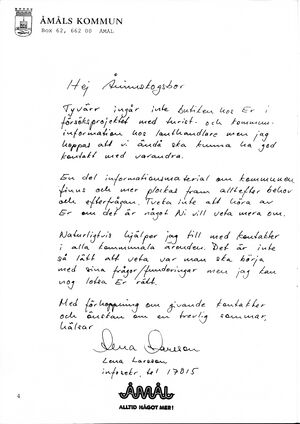 ÅMÅLS KOMMUN
Box 62, 662 00 ÅMÅL
Hej Ånimskogsbor
Tyvärr ingår inte butiken hos Er i
försöksprojektet med turist- och kommun-
information hos lanthandlare men jag
hoppas att vi ändå ska kunna ha god
kontakt med varandra.
En del informationsmaterial om kommunen
finns och mer plockas fram alltefter behov
och efterfrågan. Tveka inte att höra av
Er om det är något Ni vill veta mera om.
Naturligtvis hjälper jag till med kontakter
i alla kommunala ärenden. Det är inte
så lätt att veta var man ska börja
med sina frågor/funderingar men jag kan
nog lotsa Er rätt.
Med förhoppning om givande kontakter
och önskan om en trevlig sommar,
hälsar
Lena Larsson
Lena Larsson
infosekr, tel 17015
ÅMÅL
ALLTID NÅGOT MER!
4